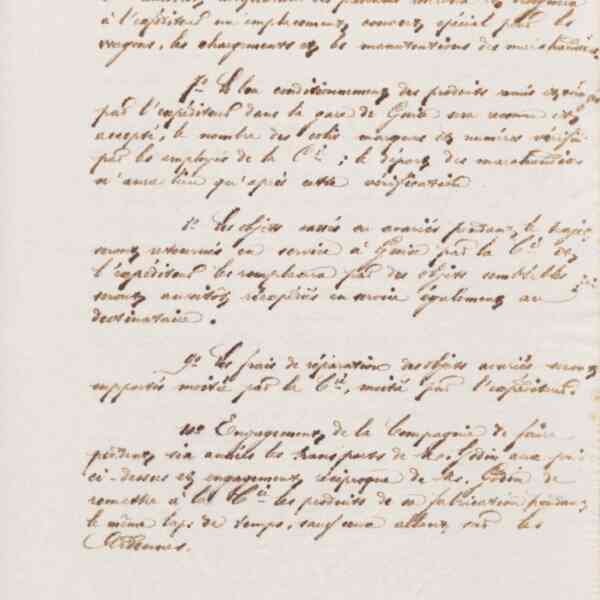 à l'expéditeur un emplacement couvert spécial pour les
wagons, les chargements et les manutentions des marchandises
7° Le bon conditionnement des produits remis et
par l'expéditeur dans la gare de Guise sera reconnu et
accepté, le nombre des colis marques et numéros vérifié
par les employés de la Cie ; le départ des marchandises
n'aura lieu qu'après cette vérification
Les objets cassés ou avariés pendant le trajet
seront retournés en service à Guise par la Cie et
l'expéditeur les remplacera par des objets semblables
seront aussitôt réexpédiés en service également au
destinataire.
9° Les frais de réparation des objets avariés seront
supportés moitié par la Cie, moitié par l'expéditeur.
10° Engagement de la Compagnie de faire
pendant six années les transports de Mr. Godin aux prix
ci-dessus et engagement réciproque de Mr. Godin de
remettre à la Cie les produits de sa fabrication pendant
le même laps de temps, sauf ceux allant sur les
Ardennes.